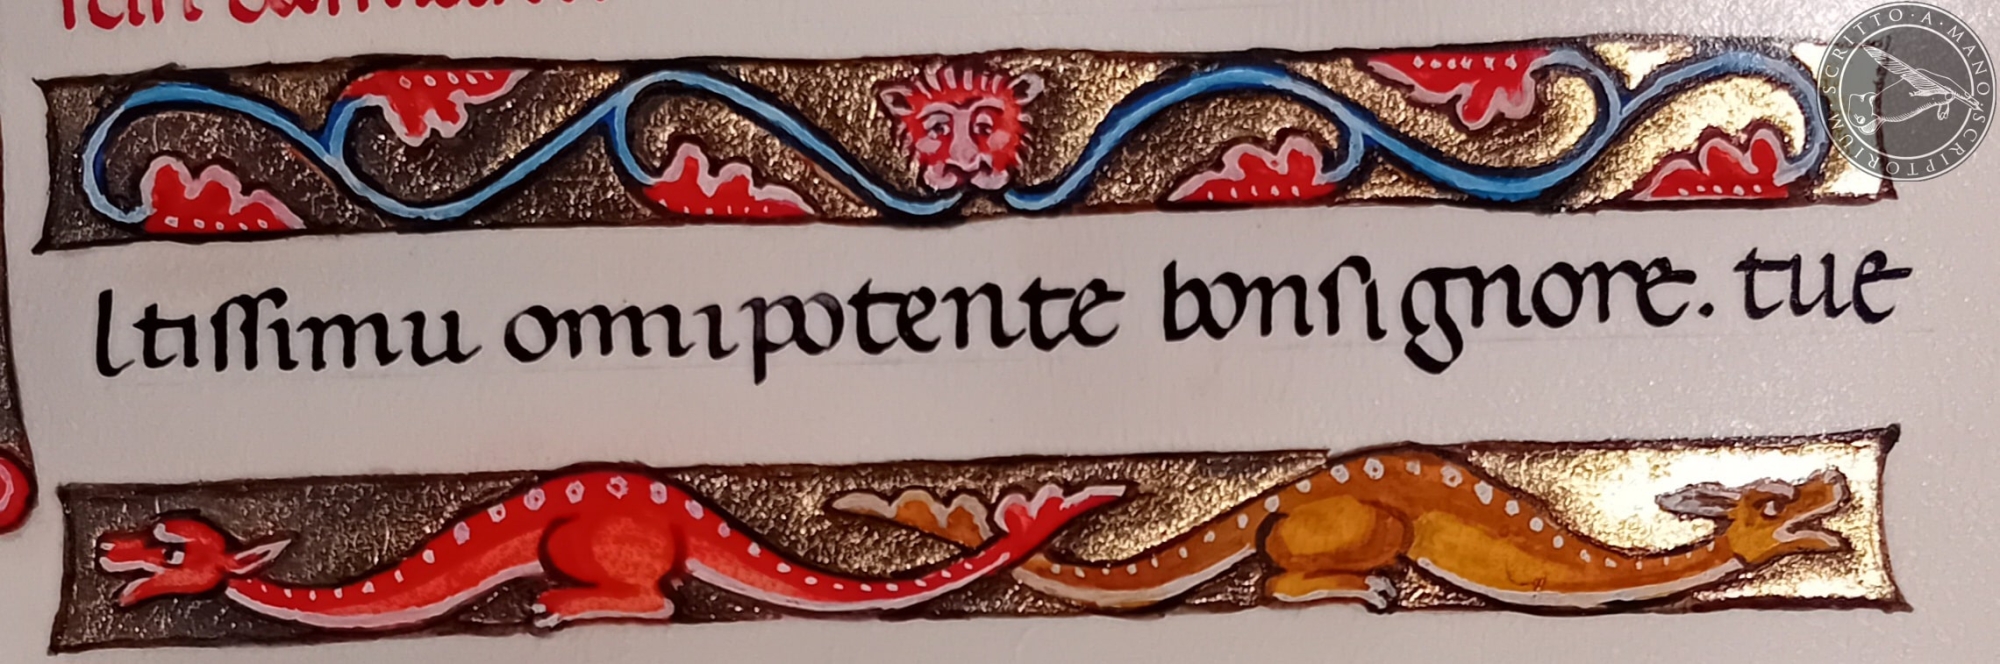 ltiſſimu omnipotente bonſignore. tue
SCRITTO·A·MANO SCRIPTORIUM